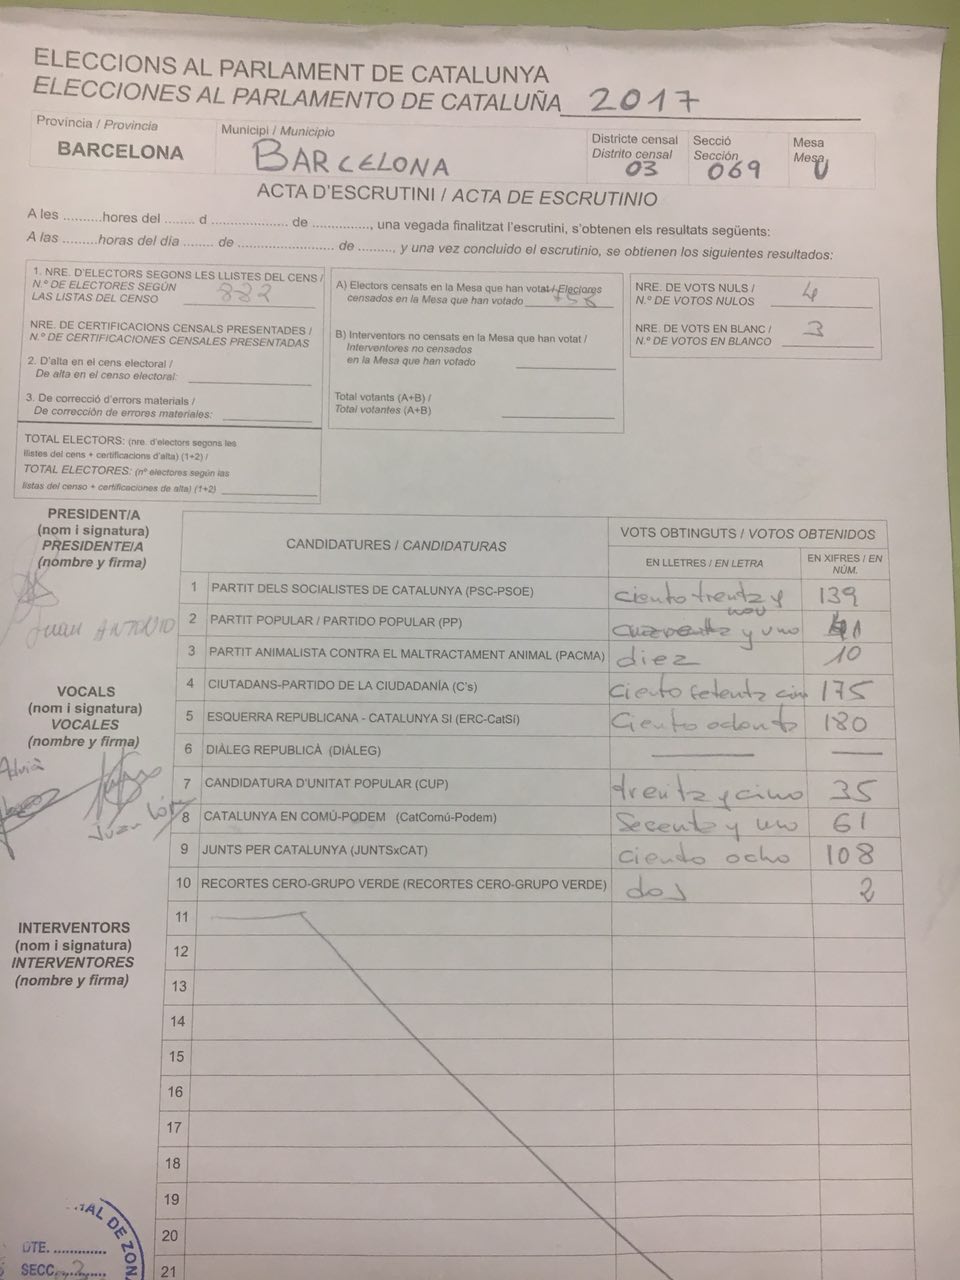 ELECCIONS AL PARLAMENT DE CATALUNYA
ELECCIONES AL PARLAMENTO DE CATALUÑA 2017
Provincia / Provincia
BARCELONA
Municipi / Municipio
BARCELONA
Districte censal
Distrito censal
03
Secció
Sección
069
Mesa
Mesa
U
ACTA D'ESCRUTINI / ACTA DE ESCRUTINIO
A les .........hores del ........ d .................... de ..............., una vegada finalitzat l'escrutini, s'obtenen els resultats següents:
A las .........horas del día ........ de ......................... de ........., y una vez concluido el escrutinio, se obtienen los siguientes resultados:
1. NRE. D'ELECTORS SEGONS LES LLISTES DEL CENS /
N.º DE ELECTORES SEGÚN
LAS LISTAS DEL CENSO 882
NRE. DE CERTIFICACIONS CENSALS PRESENTADES /
N.º DE CERTIFICACIONES CENSALES PRESENTADAS
2. D'alta en el cens electoral /
De alta en el censo electoral:
3. De correcció d'errors materials /
De corrección de errores materiales:
TOTAL ELECTORS: (nre. d'electors segons les
llistes del cens + certificacions d'alta) (1+2) /
TOTAL ELECTORES: (nº electores según las
listas del censo + certificaciones de alta) (1+2)
A) Electors censats en la Mesa que han votat / Electores
censados en la Mesa que han votado 758
B) Interventors no censats en la Mesa que han votat /
Interventores no censados
en la Mesa que han votado
Total votants (A+B) /
Total votantes (A+B)
NRE. DE VOTS NULS /
N.º DE VOTOS NULOS 4
NRE. DE VOTS EN BLANC /
N.º DE VOTOS EN BLANCO 3
PRESIDENT/A
(nom i signatura)
PRESIDENTE/A
(nombre y firma)
JUAN ANTONIO
VOCALS
(nom i signatura)
VOCALES
(nombre y firma)
Adrià
Juan
INTERVENTORS
(nom i signatura)
INTERVENTORES
(nombre y firma)
CANDIDATURES / CANDIDATURAS
VOTS OBTINGUTS / VOTOS OBTENIDOS
EN LLETRES / EN LETRA
EN XIFRES / EN NÚM.
1 PARTIT DELS SOCIALISTES DE CATALUNYA (PSC-PSOE) ciento trenta y nou 139
2 PARTIT POPULAR / PARTIDO POPULAR (PP) cuarenta y uno 41
3 PARTIT ANIMALISTA CONTRA EL MALTRACTAMENT ANIMAL (PACMA) diez 10
4 CIUTADANS-PARTIDO DE LA CIUDADANÍA (C's) ciento setenta cin 175
5 ESQUERRA REPUBLICANA - CATALUNYA SI (ERC-CatSí) ciento odonta 180
6 DIÀLEG REPUBLICÀ (DIÀLEG)
7 CANDIDATURA D'UNITAT POPULAR (CUP) trenta y cinco 35
8 CATALUNYA EN COMÚ-PODEM (CatComú-Podem) Secenta y uno 61
9 JUNTS PER CATALUNYA (JUNTSxCAT) ciento ocho 108
10 RECORTES CERO-GRUPO VERDE (RECORTES CERO-GRUPO VERDE) dos 2
11
12
13
14
15
16
17
18
19
20
21
AL DE ZON
DTE. ..............
SECC. 2